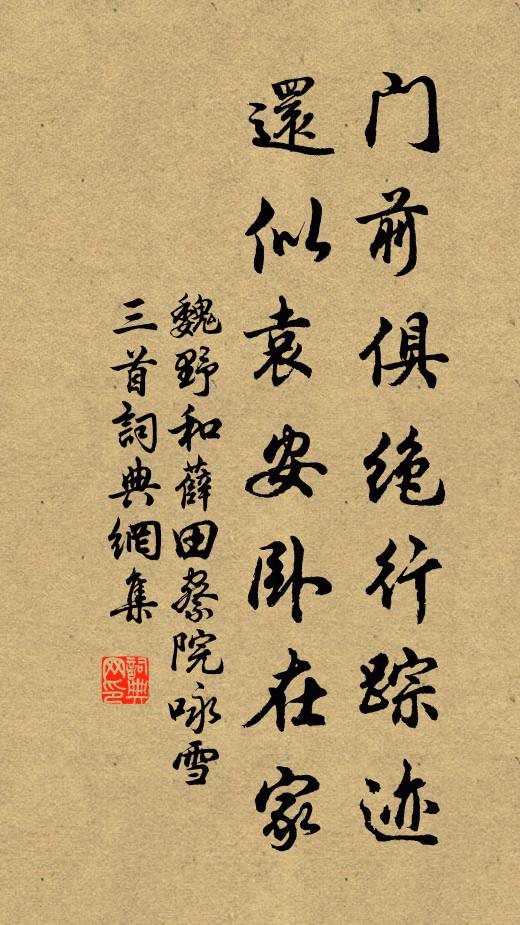 门前俱绝行踪迹
還似袁安卧在家
魏野和薛田察院咏雪
三首詞典網集
詞典
网印